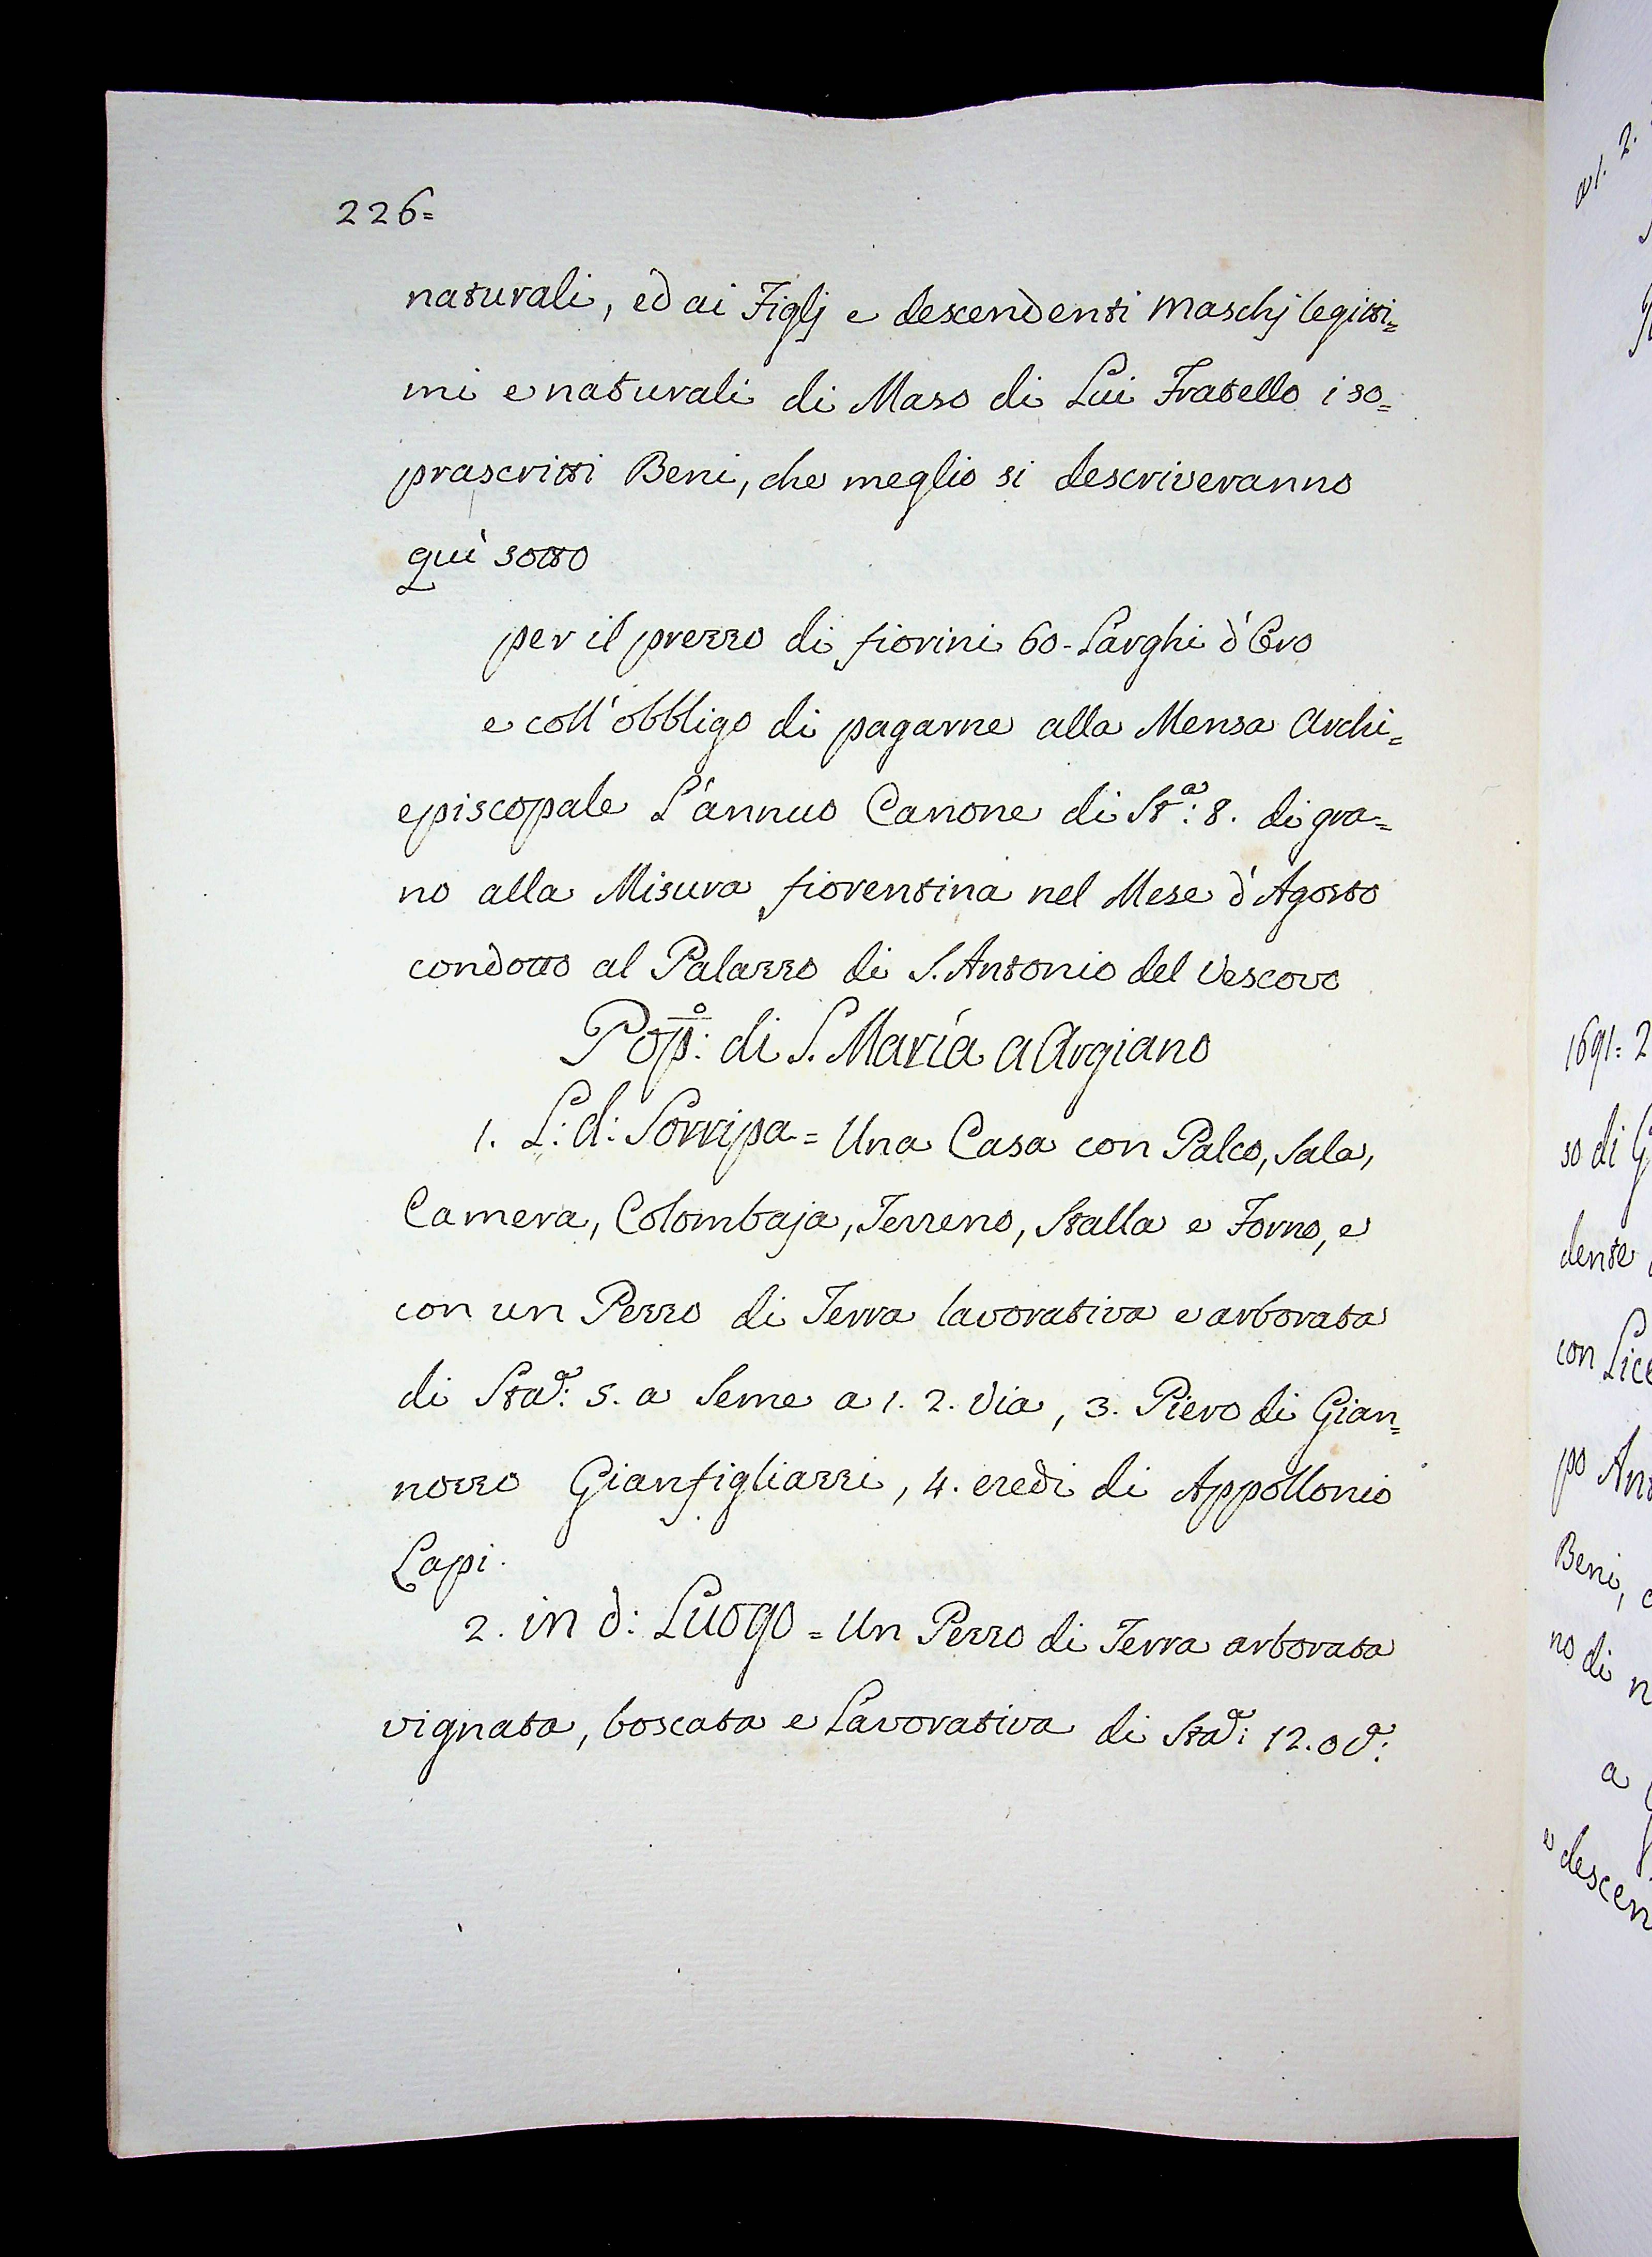 226=
naturali, ed ai Figlj e descendenti Maschj legitti=
mi e naturali di Maso di Lui Fratello i so=
prascritti Beni, che meglio si descriveranno
quì sotto
per il prezzo di fiorini 60 - Larghi d'Oro
e coll'obbligo di pagarne alla Mensa Archi=
episcopale L'annuo Canone di Stª: 8. di gra=
no alla Misura fiorentina nel Mese d'Agosto
condotto al Palazzo di S. Antonio del Vescovo
Popº: di S. Maria a Argiano
1. L: d: Sorripa = Una Casa con Palco, Sala,
Camera, Colombaja, Terreno, Stalla e Forno, e
con un Pezzo di Terra lavorativa e arborata
di Stadª: 5. a Seme a 1. 2. Via, 3. Piero di Gian=
nozzo Gianfigliazzi, 4. eredi di Appollonio
Lapi.
2. in d: Luogo = Un Pezzo di Terra arborata
vignata, boscata e Lavorativa di Stadª: 12. o dª:
1691 = 2
so di G
dente
con Lice
po Ant
Beni, c
no di n
a
e descen